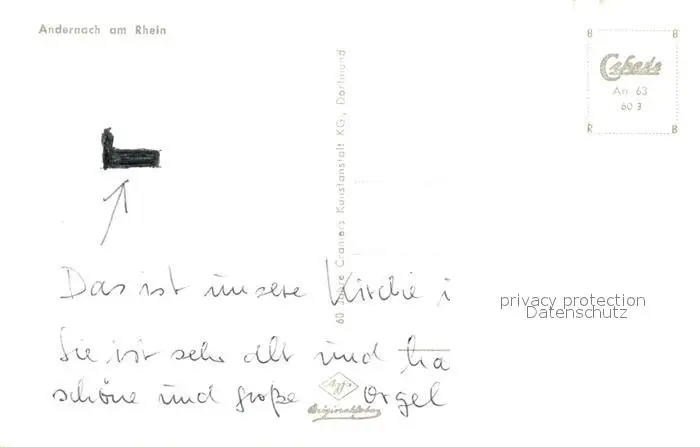 Andernach am Rhein
B B
Cekade
An 63
60 3
R B
60 Jahre Cramers Kunstanstalt KG., Dortmund
Das ist unsere Kirche i
privacy protection
Datenschutz
Sie ist sehr alt und ha
schöne und große Orgel
Agfa
Originalfoto